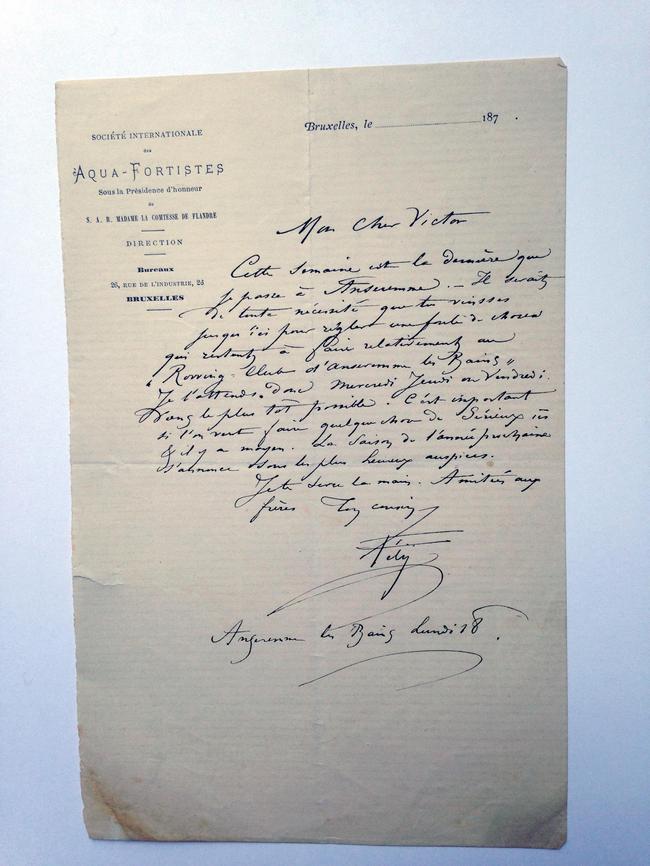 SOCIÉTÉ INTERNATIONALE
des
AQUA-FORTISTES
Sous la Présidence d'honneur
de
S. A. R. MADAME LA COMTESSE DE FLANDRE
DIRECTION
Bureaux
26, RUE DE L'INDUSTRIE, 26
BRUXELLES
Bruxelles, le 187 .
Mon Cher Victor
Cette semaine est la dernière que
je passe à Anseremme. — Il serait
de toute nécessité que tu vinsses
jusqu'ici pour régler une foule de choses
qui restent à faire relativement au
"Rowing-Club d'Anseremme les Bains"
Je t'attends donc Mercredi Jeudi ou Vendredi.
Viens le plus tôt possible. C'est important
si l'on veut faire quelque chose de Sérieux
& il y a moyen. La Saison de l'année prochaine
s'annonce sous les plus heureux auspices.
Je te serre la main. Amitiés aux
frères Ton cousin
Fély
Anseremme les Bains Lundi 18.